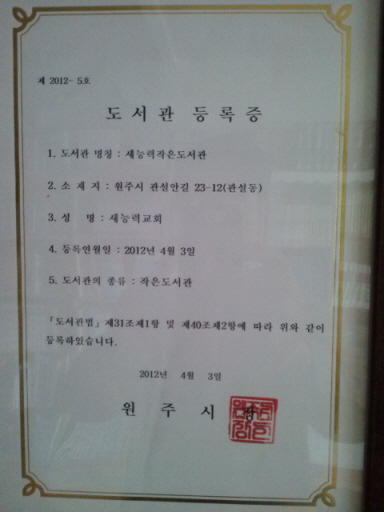 제 2012- 5호
도서관 등록증
1. 도서관 명칭 : 새능력작은도서관
2. 소 재 지 : 원주시 관설안길 23-12(관설동)
3. 성 명 : 새능력교회
4. 등록연월일 : 2012년 4월 3일
5. 도서관의 종류 : 작은도서관
「도서관법」 제31조제1항 및 제40조제2항에 따라 위와 같이
등록하였습니다.
2012년 4월 3일
원 주 시 장